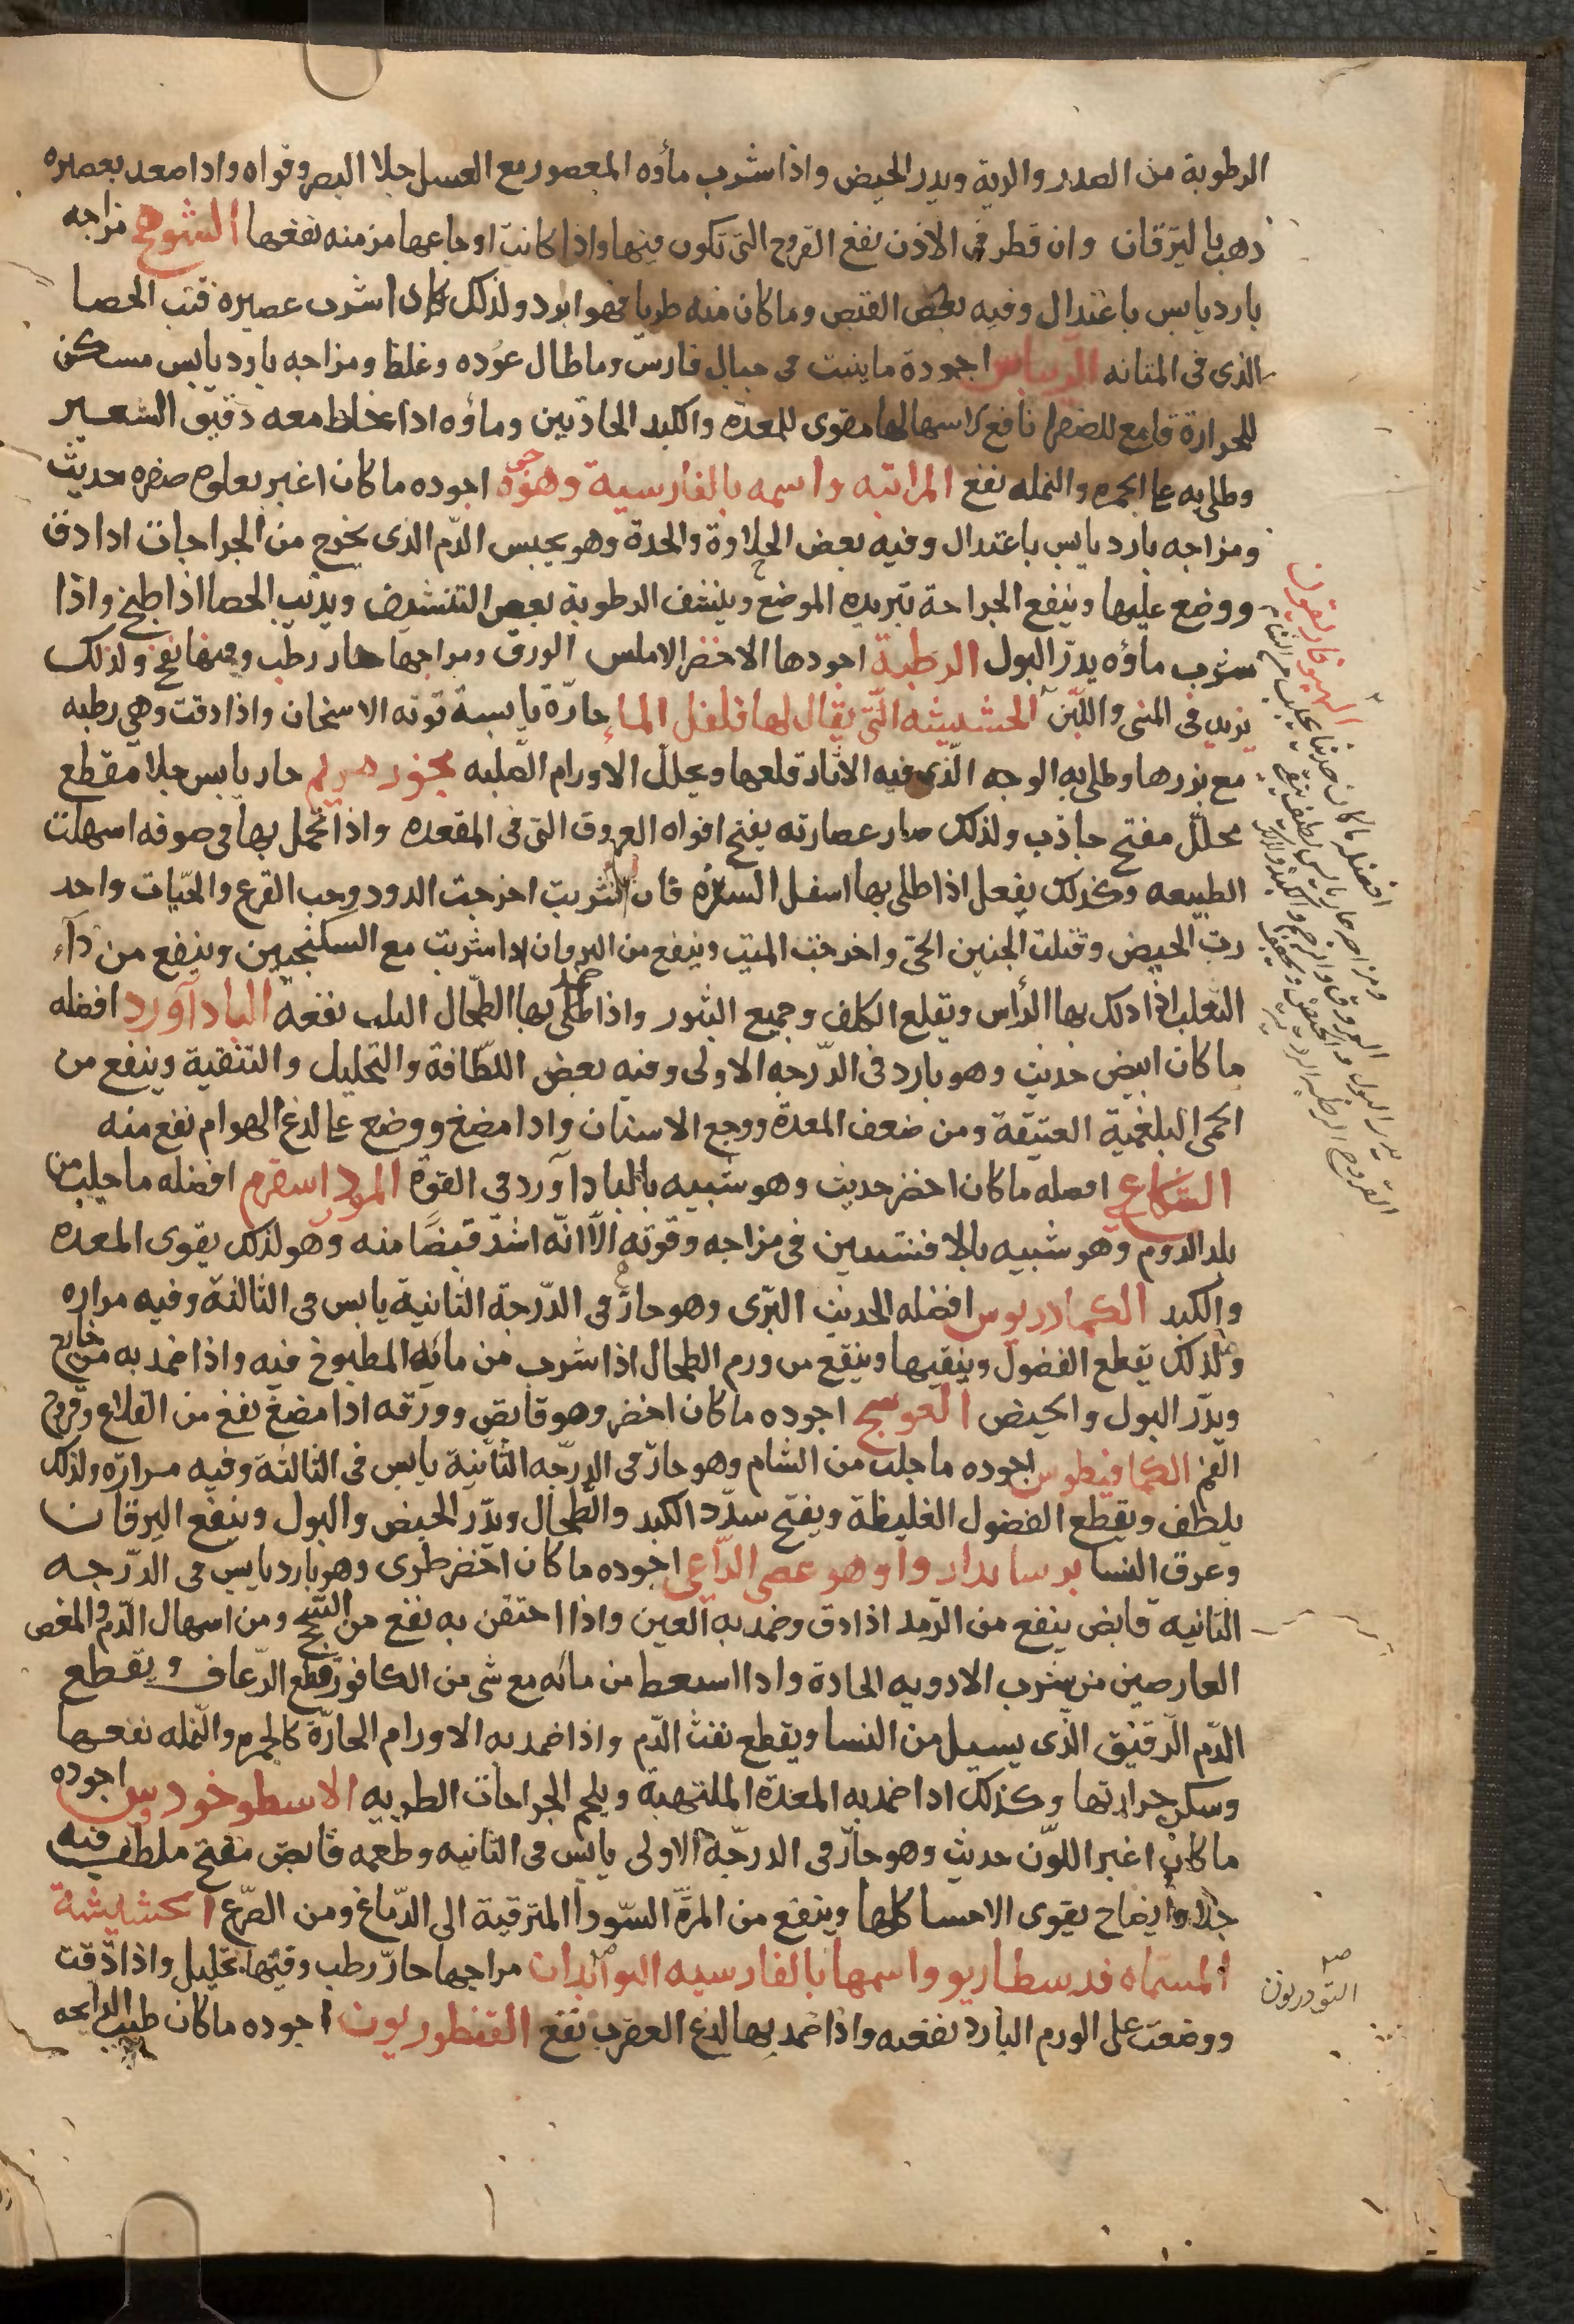 الرطوبة من الصدر والرية ويدر الحيض واذا شرب مأوه المعصور مع العسل جلا البصر وقواه واذا صعد بعصيره
ذهب باليرقان وان قطر في الاذن نفع القروح التي تكون فيها واذا كانت اوجاعها مزمنه نفعها الشوح مزاجه
بارد يابس باعتدال وفيه بعض القبض وما كان منه طريا فهو ابرد ولذلك اذا شرب عصيره فتت الحصا
الذى فى المثانه الريباس اجوده ما ينبت فى جبال فارس وما طال عوده وغلظ ومزاجه بارد يابس مسكن
للحرارة قامع للصفرا نافع لاسهالها مقوى للمعدة والكبد الحادثين ومأوه اذا خلط معه دقيق الشعير
وطلى به على الجمره والنمله نفع المراتبه واسمه بالفارسية وهوه اجوده ما كان اغبر يعلوه صفره حديث
ومزاجه بارد يابس باعتدال وفيه بعض الحلاوة والحدة وهو يحبس الدّم الذى يخرج من الجراحات اذا دق
ووضع عليها وينفع الجراحة بتبريده الموضع وينشف الرطوبة بعض التنشيف ويذيب الحصا اذا طبخ واذا
شرب ماؤه يدرّ البول الرطبة اجودها الاخضر الاملس الورق ومزاجها حار رطب وفيها نفخ ولذلك
يزيد فى المنى واللبن الحشيشه التّى يقال لها فلفل الماء حارّة يابسة قوته الاسخان واذا دقت وهي رطبه
مع بزرها وطلى به الوجه الّذى فيه الاثار قلعها ويحلل الاورام الصّلبه بخور مريم حار يابس جلا مقطع
محلل مفتح جاذب ولذلك صار عصارته يفتح افواه العروق التى فى المقعده واذا تحمل بها فى صوفه اسهلت
الطبيعه وكذلك يفعل اذا طلى بها اسفل السرّه فان شربت اخرجت الدود وحب القرع والحيّات واحد
رت الحيض وقتلت الجنين الحىّ واخرجت الميت وينفع من اليرقان اذا شربت مع السكنجبين وينفع من دآء
الثعلب اذا دلك بها الرأس ويقلع الكلف وجميع البثور واذا طلى بها الطّحال الصلب نفعه الباد آورد افضله
ما كان ابيض حديث وهو بارد فى الدّرجه الاولى وفيه بعض اللطّافة والتحليل والتنقية وينفع من
الحمى البلغمية العتيقة ومن ضعف المعدة ووجع الاسنان واذا مضغ ووضع على لدغ الهوام نفع منه
الشكاعي افضله ما كان اخضر حديث وهو شبيه بالباد آورد فى القوّة المرد اسفرم افضله ما جلب من
بلد الروم وهو شبيه بالافسنتين فى مزاجه وقوته الّا انّه اشدّ قبضًا منه وهو لذلك يقوى المعده
والكبد الكمادريوس افضله الحديث البّرى وهو حارّ فى الدّرجة الثانية يابس فى الثالثة وفيه مراره
ولذلك يقطع الفضول وينقيها وينفع من ورم الطحال اذا شرب من مائه المطبوخ فيه واذا ضمد به من خارج
ويدّر البول والحيض العوسج اجوده ما كان اخضر وهو قابض وورقه اذا مضغ نفع من القلاع وقروح
الفم الكمافيطوس اجوده ما جلب من الشام وهو حارّ فى الدرّجه الثانية يابس فى الثالثة وفيه مرارة ولذلك
يلطف ويقطع الفضول الغليظة ويفتح سدّد الكبد والطّحال ويدّر الحيض والبول وينفع اليرقان
وعرق النسا برسايدارواو هو عصى الرّاعى اجوده ما كان اخضر طرى وهو بارد يابس فى الدّرجه
الثانيه قابض ينفع من الرّمد اذا دق وضمد به العين واذا احتقن به نفع من السّحج ومن اسهال الدّم والمغص
العارضين من شرب الادويه الحادة واذا اسعط من مائه مع شى من الكافور قطع الرّعاف ويقطع
الدّم الرّقيق الذّى يسيل من النسا ويقطع نفث الدّم واذا ضمد به الاورام الحارّة كالجمره والنّمله نفعها
وسكن حرارتها وكذلك اذا ضمد به المعدة الملتهبة ويلحم الجراحات الطريه الاسطوخودوس اجوده
ما كان اغبر اللوّن حديث وهو حارّ فى الدرجّة الاولى يابس فى الثانيه وطعمه قابض مفتح ملطف فيه
جلا وايضاح يقوى الاحشا كلها وينفع من المرّة السّودا المترقية الى الدّماغ ومن الصّرع الحشيشة
المسمّاه فدسطاريو واسمها بالفارسيه البوابدان مزاجها حارّ رطب وفيها تحليل واذا دقت
ووضعت على الورم البارد نفعه واذا ضمد بها لدغ العقرب نفع القنطوريون اجوده ما كان طيب الرايحه
الهيوفاريقون
افضله ما كان حديثا يجلب من الشام
ومزاجه حار يابس لطيف
يدر البول والحيض
التودريون